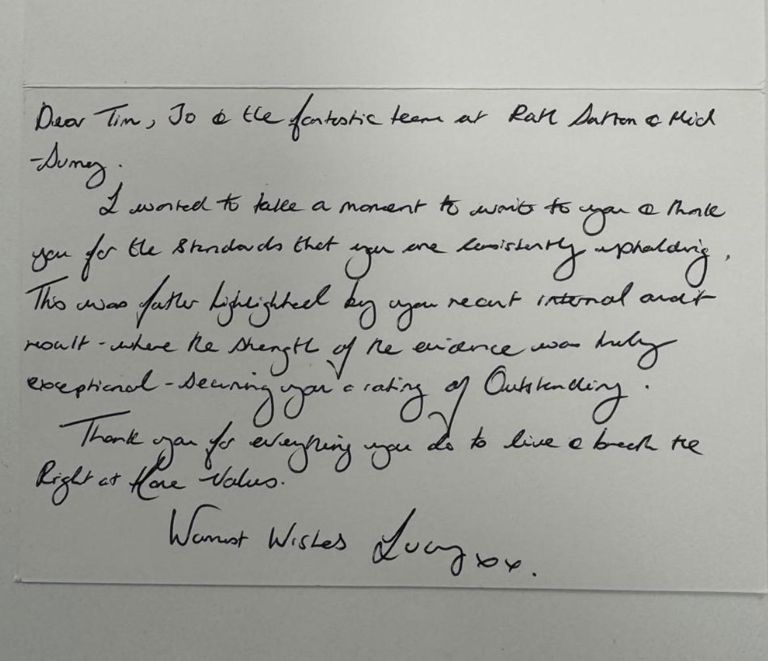 Dear Tim, Jo & the fantastic team at RaH Sutton & Mid
-Surrey.
I wanted to take a moment to write to you & thank
you for the standards that you are consistently upholding.
This was further highlighted by your recent internal audit
result - where the strength of the evidence was truly
exceptional - securing you a rating of Outstanding.
Thank you for everything you do to live & breath the
Right at Home Values.
Warmest Wishes Lucy xx.